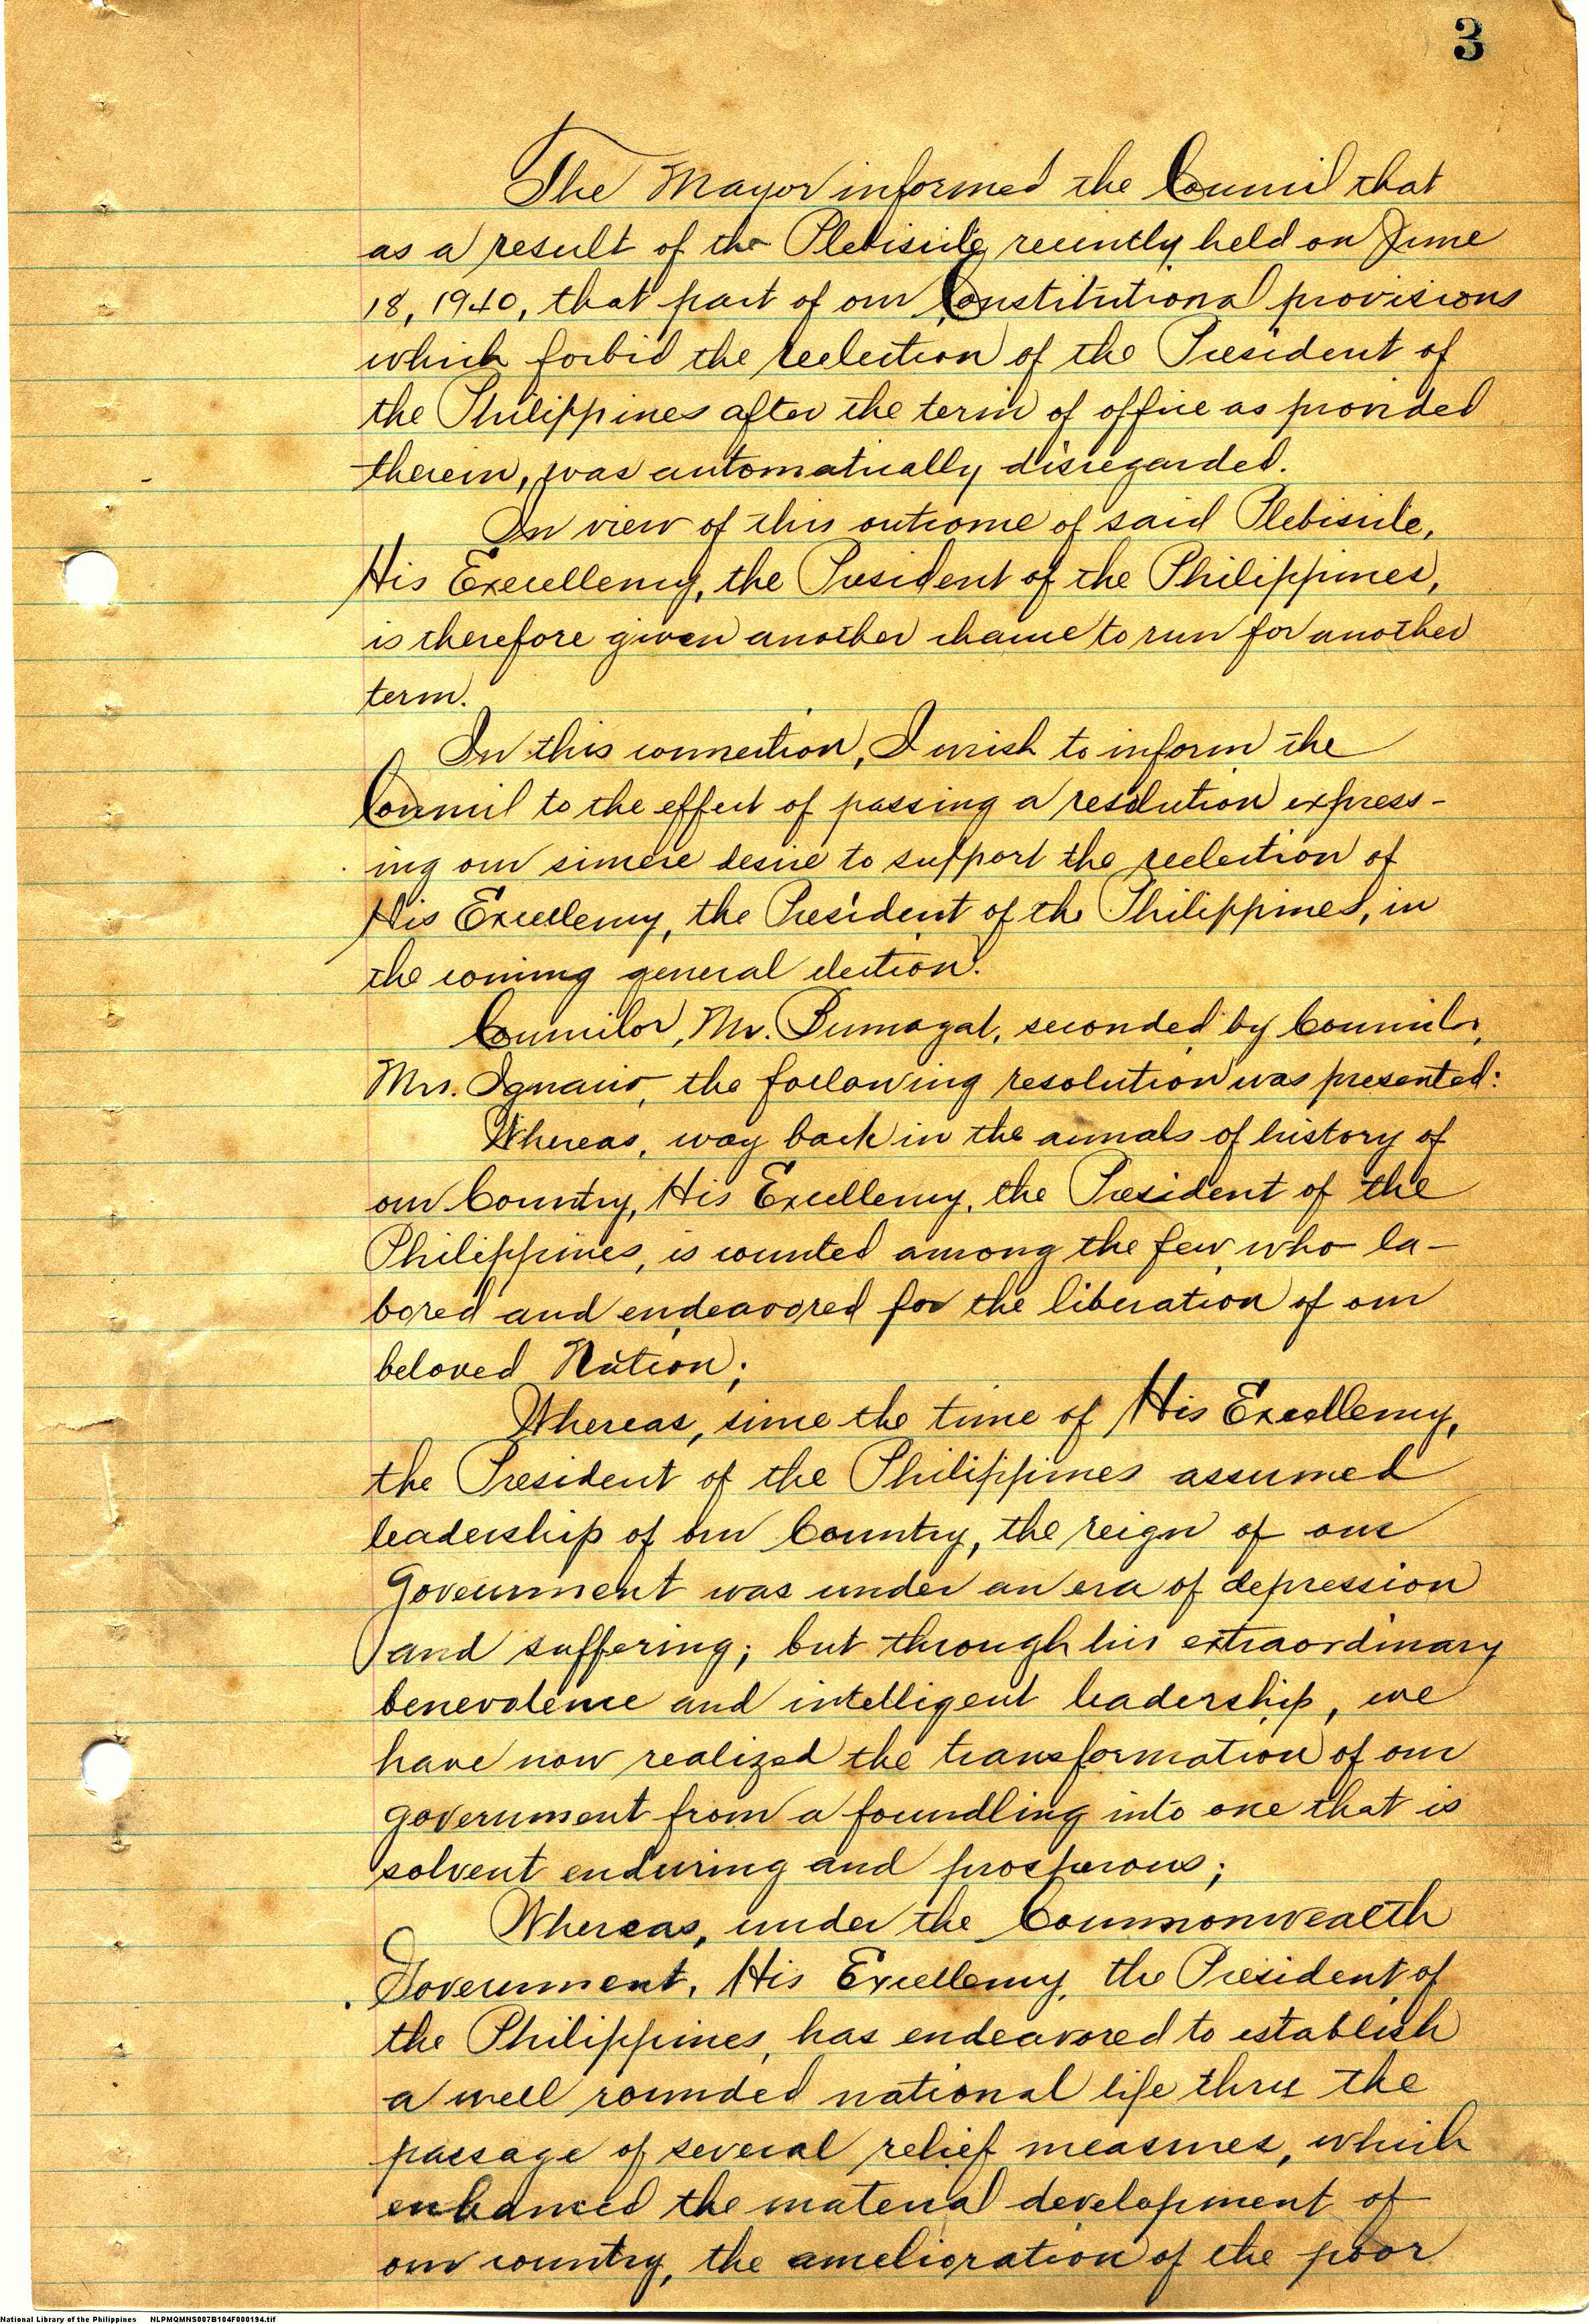 3
The Mayor informed the Council that
as a result of the Plebiscite recently held on June
18, 1940, that part of our Constitutional provisions
which forbid the reelection of the President of
the Philippines after the term of office as provided
therein, was automatically disregarded.
In view of this outcome of said Plebiscite,
His Execellency, the President of the Philippines,
is therefore given another chance to run for another
term.
In this connection, I wish to inform the
Council to the effect of passing a resolution express-
ing our sincere desire to support the reelection of
His Excellency, the President of the Philippines, in
the coming general election.
Councilor, Mr. Dumagat, seconded by Councilor,
Mrs. Ignacio, the following resolution was presented:
Whereas, way back in the annals of history of
our Country, His Excellency, the President of the
Philippines, is counted among the few who la-
bored and endeavored for the liberation of our
beloved Nation;
Whereas, since the time of His Excellency,
the President of the Philippines assumed
leadership of our Country, the reign of our
Government was under an era of depression
and suffering; but through his extraordinary
benevolence and intelligent leadership, we
have now realized the transformation of our
government from a foundling into one that is
solvent enduring and prosperous;
Whereas, under the Commonwealth
Government, His Excellency, the President of
the Philippines, has endeavored to establish
a well rounded national life thru the
passage of several relief measures, which
enhanced the material development of
our country, the amelioration of the poor
National Library of the Philippines NLPMQMNS007B104F000194.tif